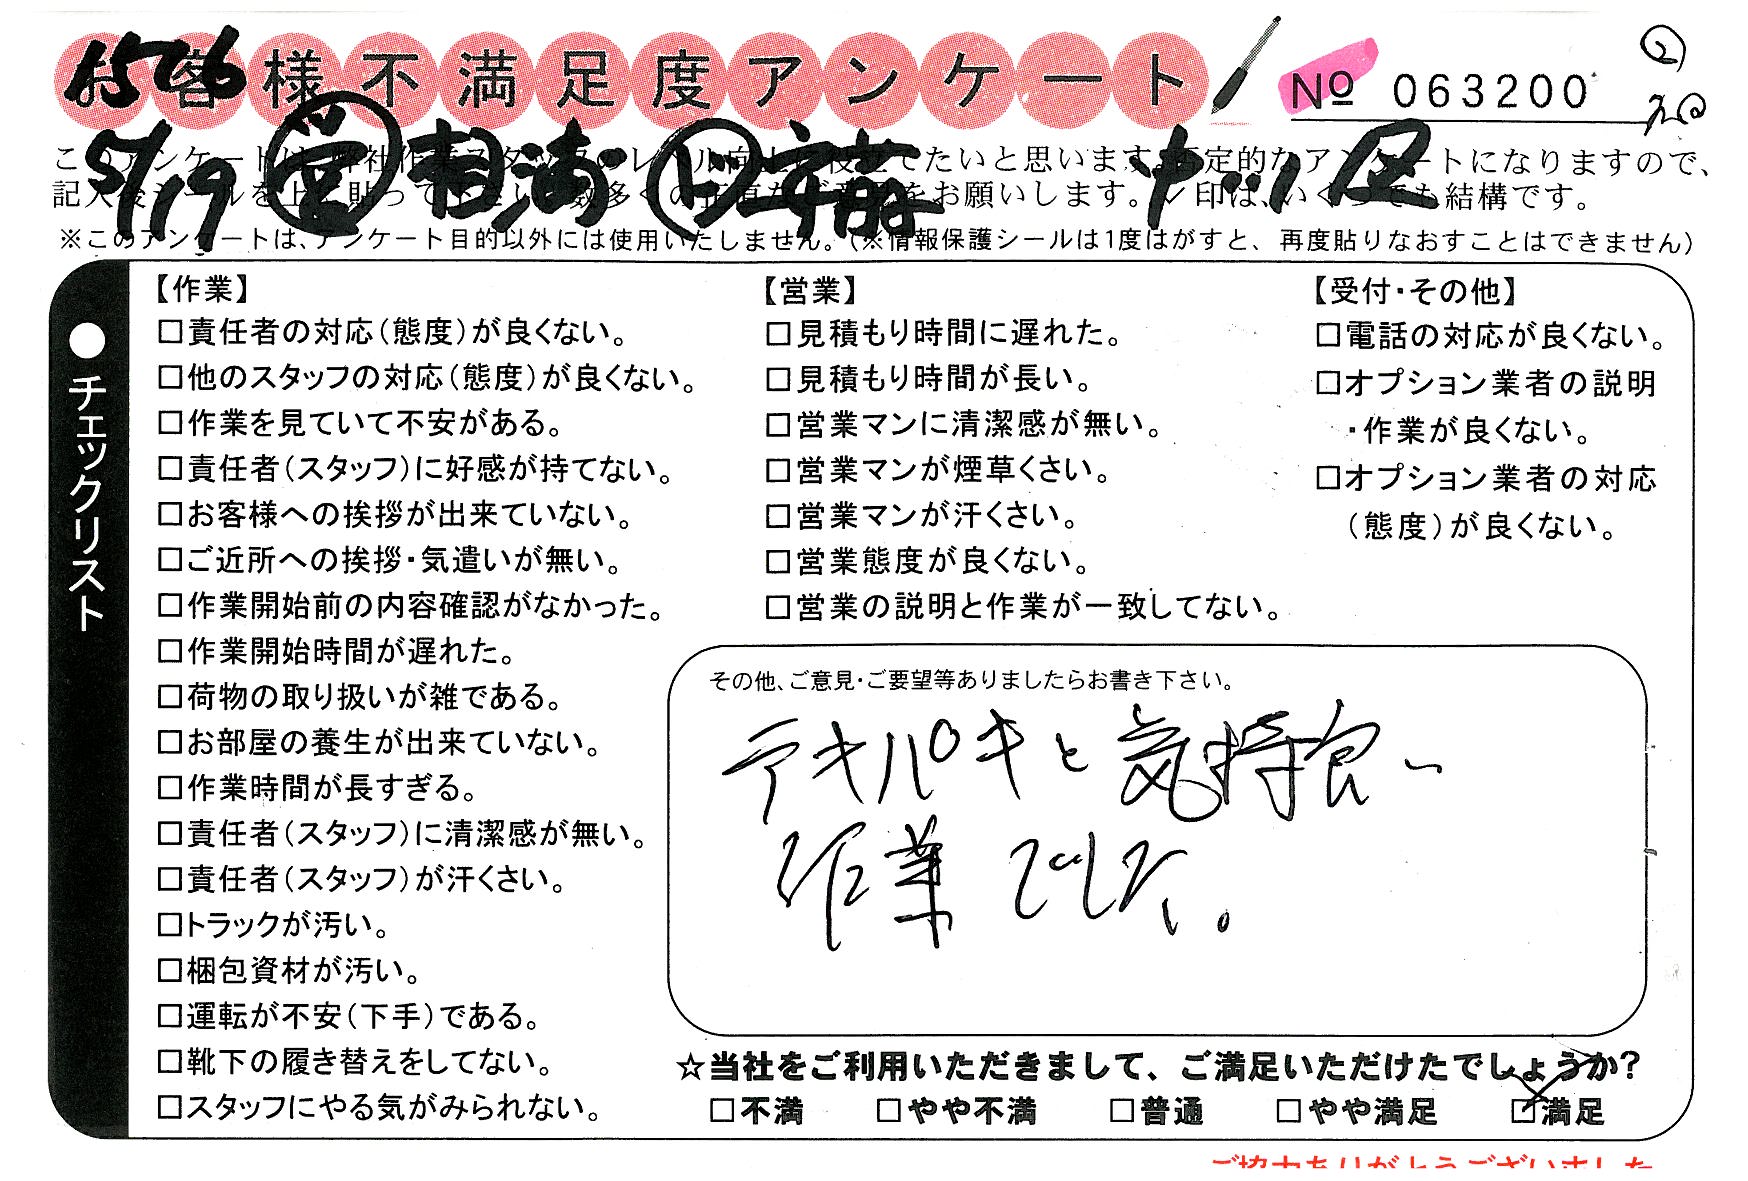 お客様不満足度アンケート
No 063200
1576
5/19 営 相浦 安藤
このアンケートは、弊社作業スタッフのレベル向上に役立てたいと思います。否定的なアンケートになりますので、
記入後シールを上に貼って下さい。数多くの正直なご意見をお願いします。✓印は、いくつでも結構です。
※このアンケートは、アンケート目的以外には使用いたしません。(※情報保護シールは1度はがすと、再度貼りなおすことはできません)
●チェックリスト
【作業】
□責任者の対応(態度)が良くない。
□他のスタッフの対応(態度)が良くない。
□作業を見ていて不安がある。
□責任者(スタッフ)に好感が持てない。
□お客様への挨拶が出来ていない。
□ご近所への挨拶・気遣いが無い。
□作業開始前の内容確認がなかった。
□作業開始時間が遅れた。
□荷物の取り扱いが雑である。
□お部屋の養生が出来ていない。
□作業時間が長すぎる。
□責任者(スタッフ)に清潔感が無い。
□責任者(スタッフ)が汗くさい。
□トラックが汚い。
□梱包資材が汚い。
□運転が不安(下手)である。
□靴下の履き替えをしてない。
□スタッフにやる気がみられない。
【営業】
□見積もり時間に遅れた。
□見積もり時間が長い。
□営業マンに清潔感が無い。
□営業マンが煙草くさい。
□営業マンが汗くさい。
□営業態度が良くない。
□営業の説明と作業が一致してない。
【受付・その他】
□電話の対応が良くない。
□オプション業者の説明
・作業が良くない。
□オプション業者の対応
(態度)が良くない。
その他、ご意見・ご要望等ありましたらお書き下さい。
テキパキと気持良い
作業でした。
☆当社をご利用いただきまして、ご満足いただけたでしょうか?
□不満 □やや不満 □普通 □やや満足 □満足
ご協力ありがとうございました